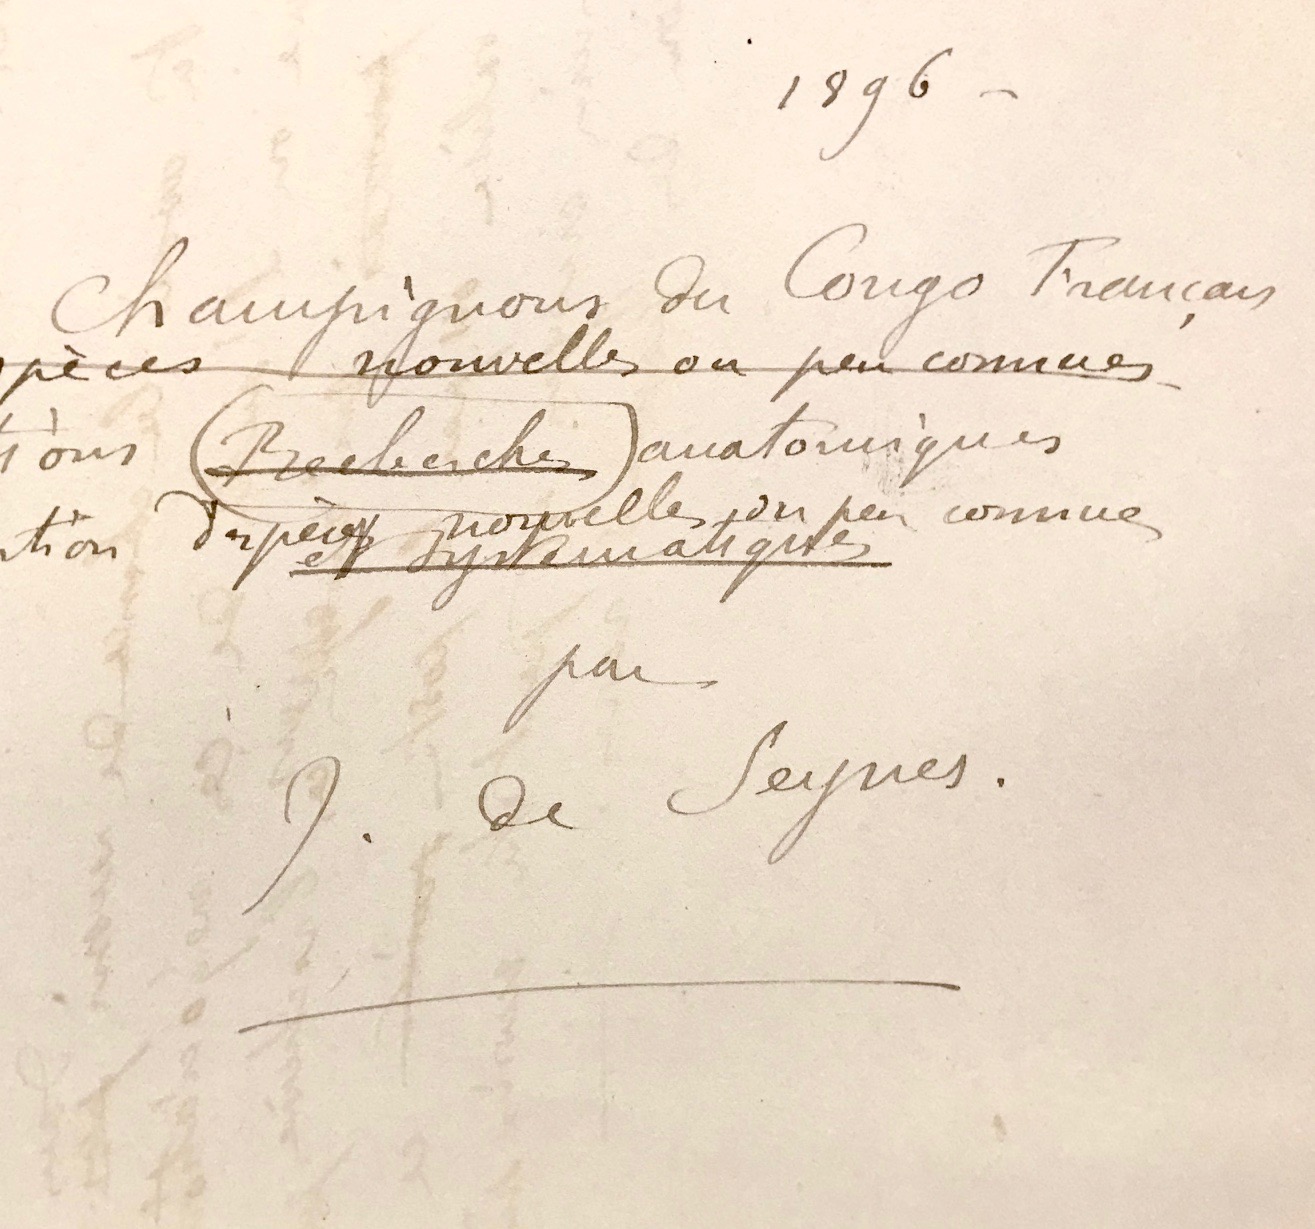 1896 -
Champignons du Congo Français
pèces nouvelles ou peu connues
tions (Recherches) anatomiques
tion d'espèces nouvelles ou peu connues
et systematiques
par
J. de Seynes.